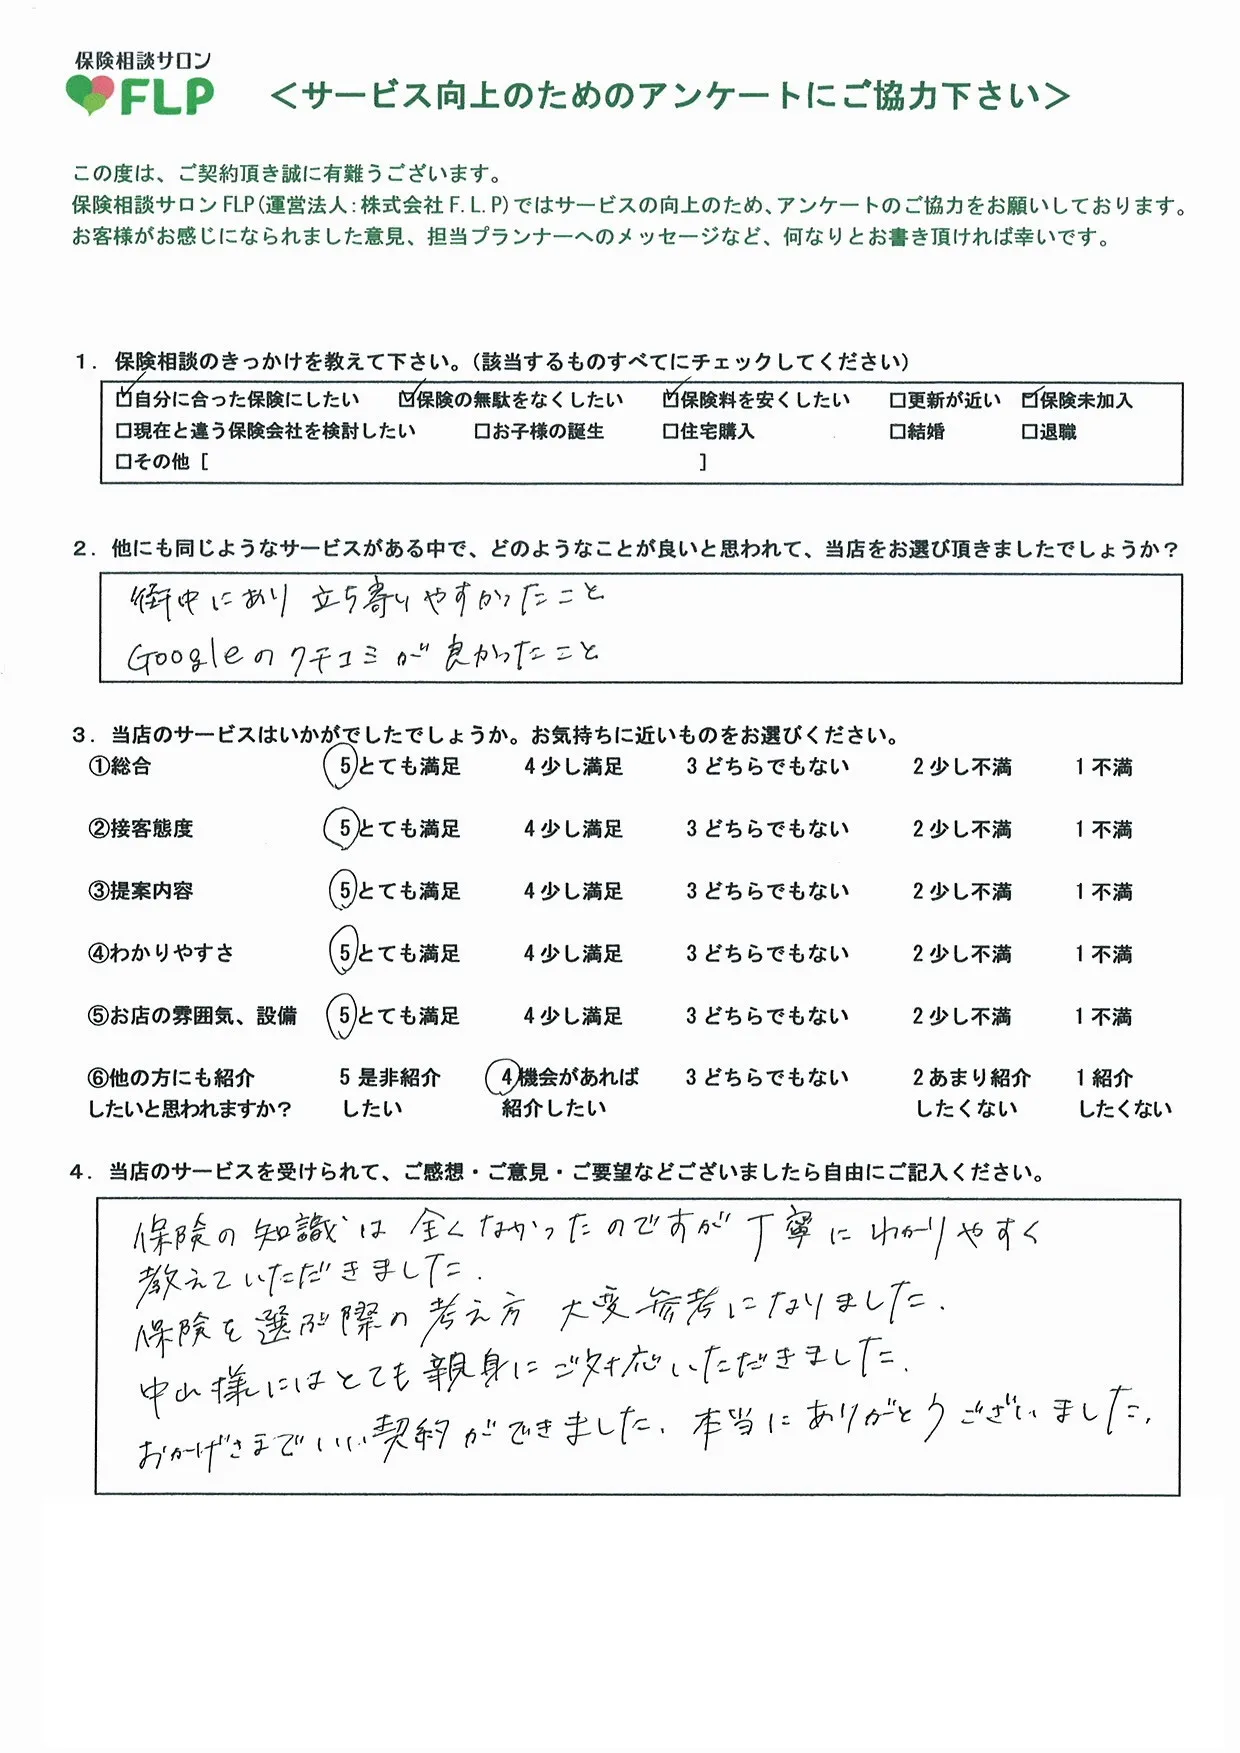 保険相談サロン
FLP
＜サービス向上のためのアンケートにご協力下さい＞
この度は、ご契約頂き誠に有難うございます。
保険相談サロンFLP(運営法人:株式会社F.L.P)ではサービスの向上のため、アンケートのご協力をお願いしております。
お客様がお感じになられました意見、担当プランナーへのメッセージなど、何なりとお書き頂ければ幸いです。
1．保険相談のきっかけを教えて下さい。（該当するものすべてにチェックしてください）
☑自分に合った保険にしたい ☑保険の無駄をなくしたい ☑保険料を安くしたい □更新が近い ☑保険未加入
□現在と違う保険会社を検討したい □お子様の誕生 □住宅購入 □結婚 □退職
□その他 [ ]
2．他にも同じようなサービスがある中で、どのようなことが良いと思われて、当店をお選び頂きましたでしょうか？
街中にあり 立ち寄りやすかったこと
Googleのクチコミが良かったこと
3．当店のサービスはいかがでしたでしょうか。お気持ちに近いものをお選びください。
①総合 5とても満足 4少し満足 3どちらでもない 2少し不満 1不満
②接客態度 5とても満足 4少し満足 3どちらでもない 2少し不満 1不満
③提案内容 5とても満足 4少し満足 3どちらでもない 2少し不満 1不満
④わかりやすさ 5とても満足 4少し満足 3どちらでもない 2少し不満 1不満
⑤お店の雰囲気、設備 5とても満足 4少し満足 3どちらでもない 2少し不満 1不満
⑥他の方にも紹介 5是非紹介 4機会があれば 3どちらでもない 2あまり紹介 1紹介
したいと思われますか？ したい 紹介したい したくない したくない
4．当店のサービスを受けられて、ご感想・ご意見・ご要望などございましたら自由にご記入ください。
保険の知識は全くなかったのですが丁寧にわかりやすく
教えていただきました.
保険を選ぶ際の考え方 大変参考になりました.
中山様にはとても親身にご対応いただきました.
おかげさまでいい契約ができました. 本当にありがとうございました.